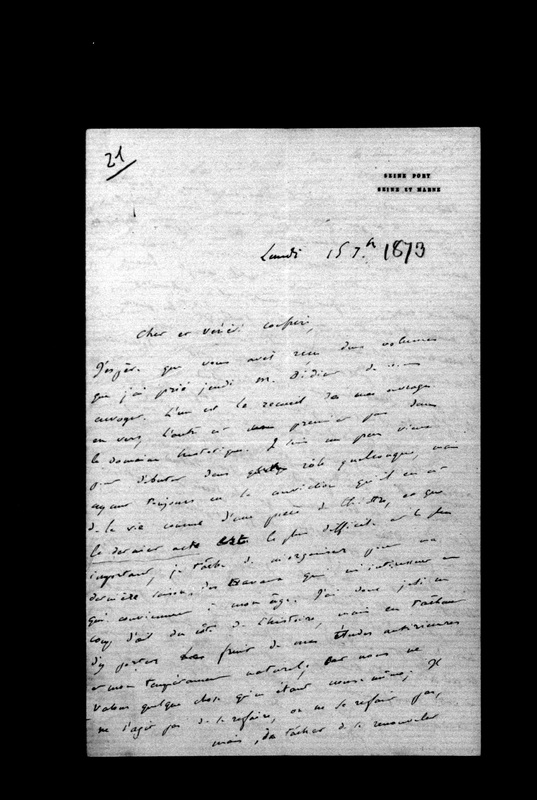 21
SEINE PORT
SEINE ET MARNE
Lundi 15 7bre 1873
Cher et vénéré confrère,
J'espère que vous avez reçu deux volumes
que j'ai prié jeudi M. Didier de vous
envoyer. L'un est le recueil de mes ouvrages
en vers, l'autre est mon premier pas dans
le domaine historique. Je suis un peu vieux
pour débuter dans quelque rôle quelconque, mais
ayant toujours eu la conviction qu'il en est
de la vie comme d'une pièce de théâtre, et que
le dernier acte est le plus difficile et le plus
important, je tâche de m'organiser pour ma
dernière saison des travaux qui m'intéressent et
qui conviennent à mon âge. J'ai donc jeté un
coup d'œil du côté de l'histoire, mais en tâchant
d'y porter le fruit de mes études antérieures
et mon tempérament naturel, car nous ne
valons quelque chose qu'en étant nous-même; Il
ne s'agit pas de se refaire, on ne se refait pas,
mais de tâcher de se renouveler